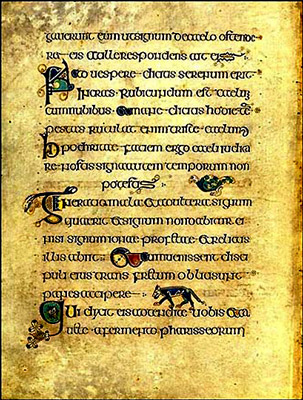 gauerunt eum ut signum de caelo ostende
ra eis at ille respondens ait eis
acto uespere dicitis serenum erit
rubicundum est caelum
cum nubibus et mane dicitis hodie te
pestas rutulat enim triste caelum
hipochritae faciem ergo caeli iudica
re nostis signa autem temporum non
potestis
Generatio mala et adultera signum
quaerit et signum non dabitur ei
nisi signum ionae profetae et relictis
illis abiit Et cum uenissent disci
puli eius trans fretum obliti sunt
panes accipere
Qui dixit eis attendite uobis et ca
uete a fermento pharisseorum